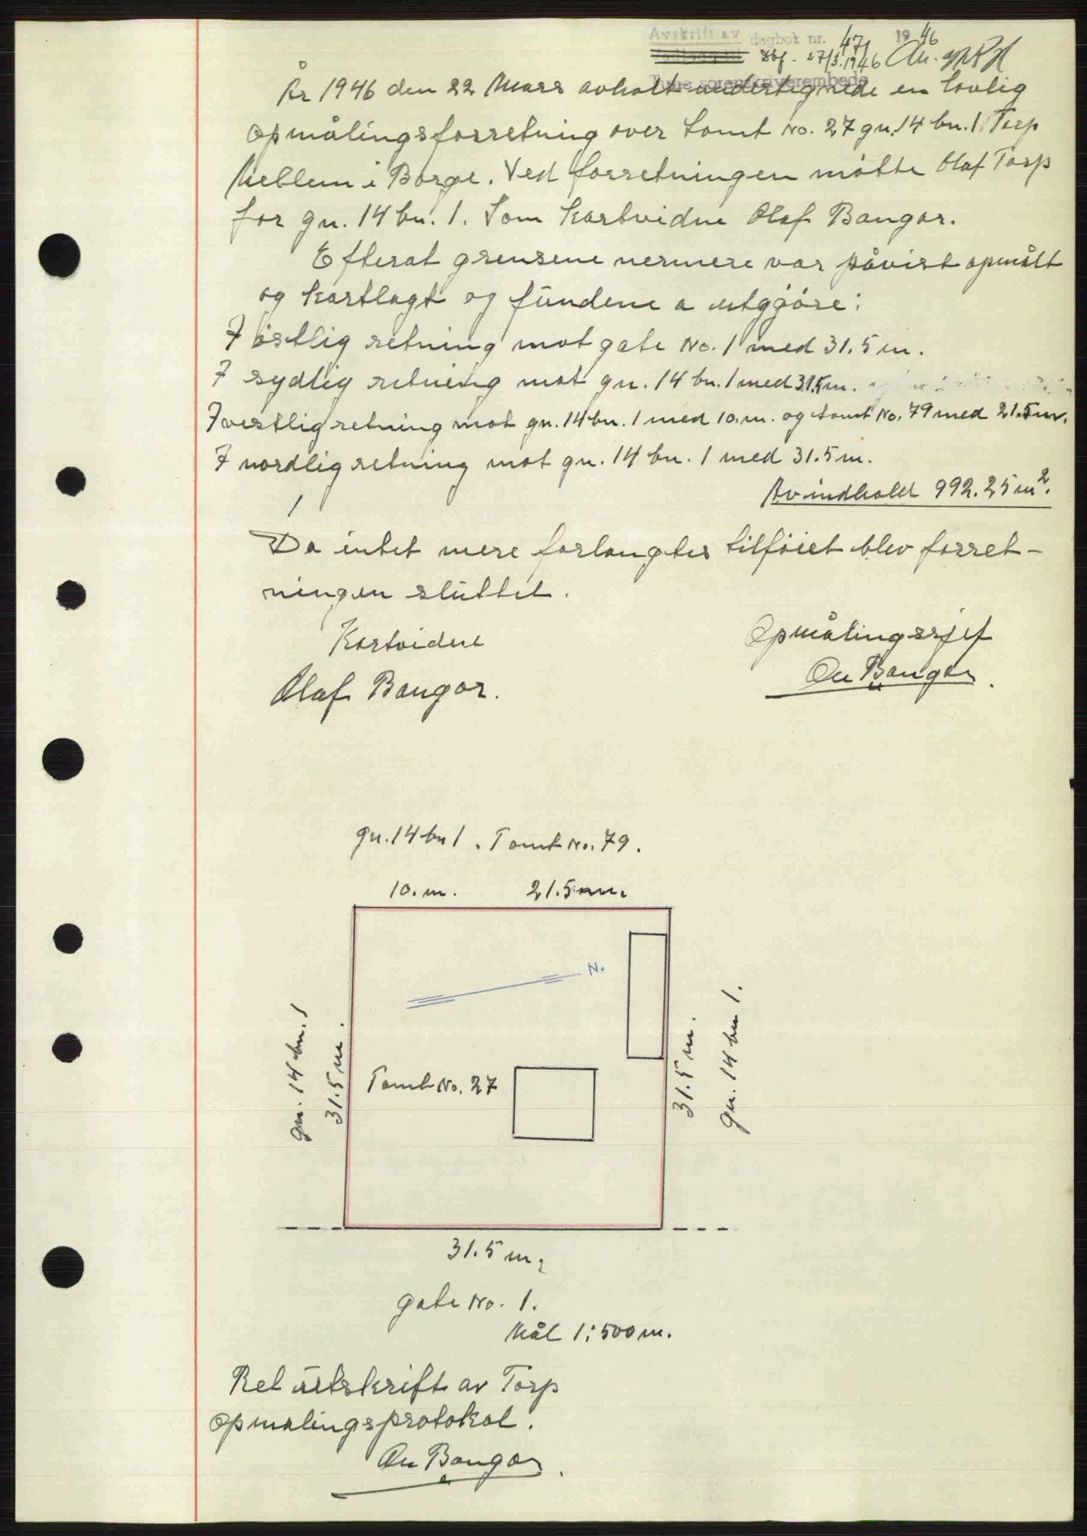 Avskrift av dagbok nr. 471 1946
Dbf. 27/3. 1946
Tune sorenskriverembede
År 1946 den 22 Mars avholt undertegnede en lovlig
opmålingsforretning over tomt No. 27 gn. 14 bn. 1. Torp
Mellem i Borge. Ved forretningen møtte Olaf Torp
for gn. 14 bn. 1. Som kartvidne Olaf Bangor.
Efterat grensene nermere var påvist opmålt
og kartlagt og fundene a utgjøre:
I östlig retning mot gate No. 1 med 31.5 m.
I sydlig retning mot gn. 14 bn. 1 med 31.5 m.
I vestlig retning mot gn. 14 bn. 1 med 10. m. og tomt No. 79 med 21.5 m.
I nordlig retning mot gn. 14 bn. 1 med 31.5 m.
Av indhold 992.25 m².
Da intet mere forlangtes tilföiet blev forret-
ningen sluttet.
Kartvidne
Olaf Bangor.
Opmålingssjef
Bangor.
gn. 14 bn 1. Tomt No. 79.
10. m. 21.5 m.
N.
gn. 14 bn. 1
31.5 m.
Tomt No. 27
31.5 m.
gn. 14 bn 1.
31.5 m.
gate No. 1.
Mål 1:500 m.
Ret utskrift av Torp
opmalingsprotokol.
Bangor.